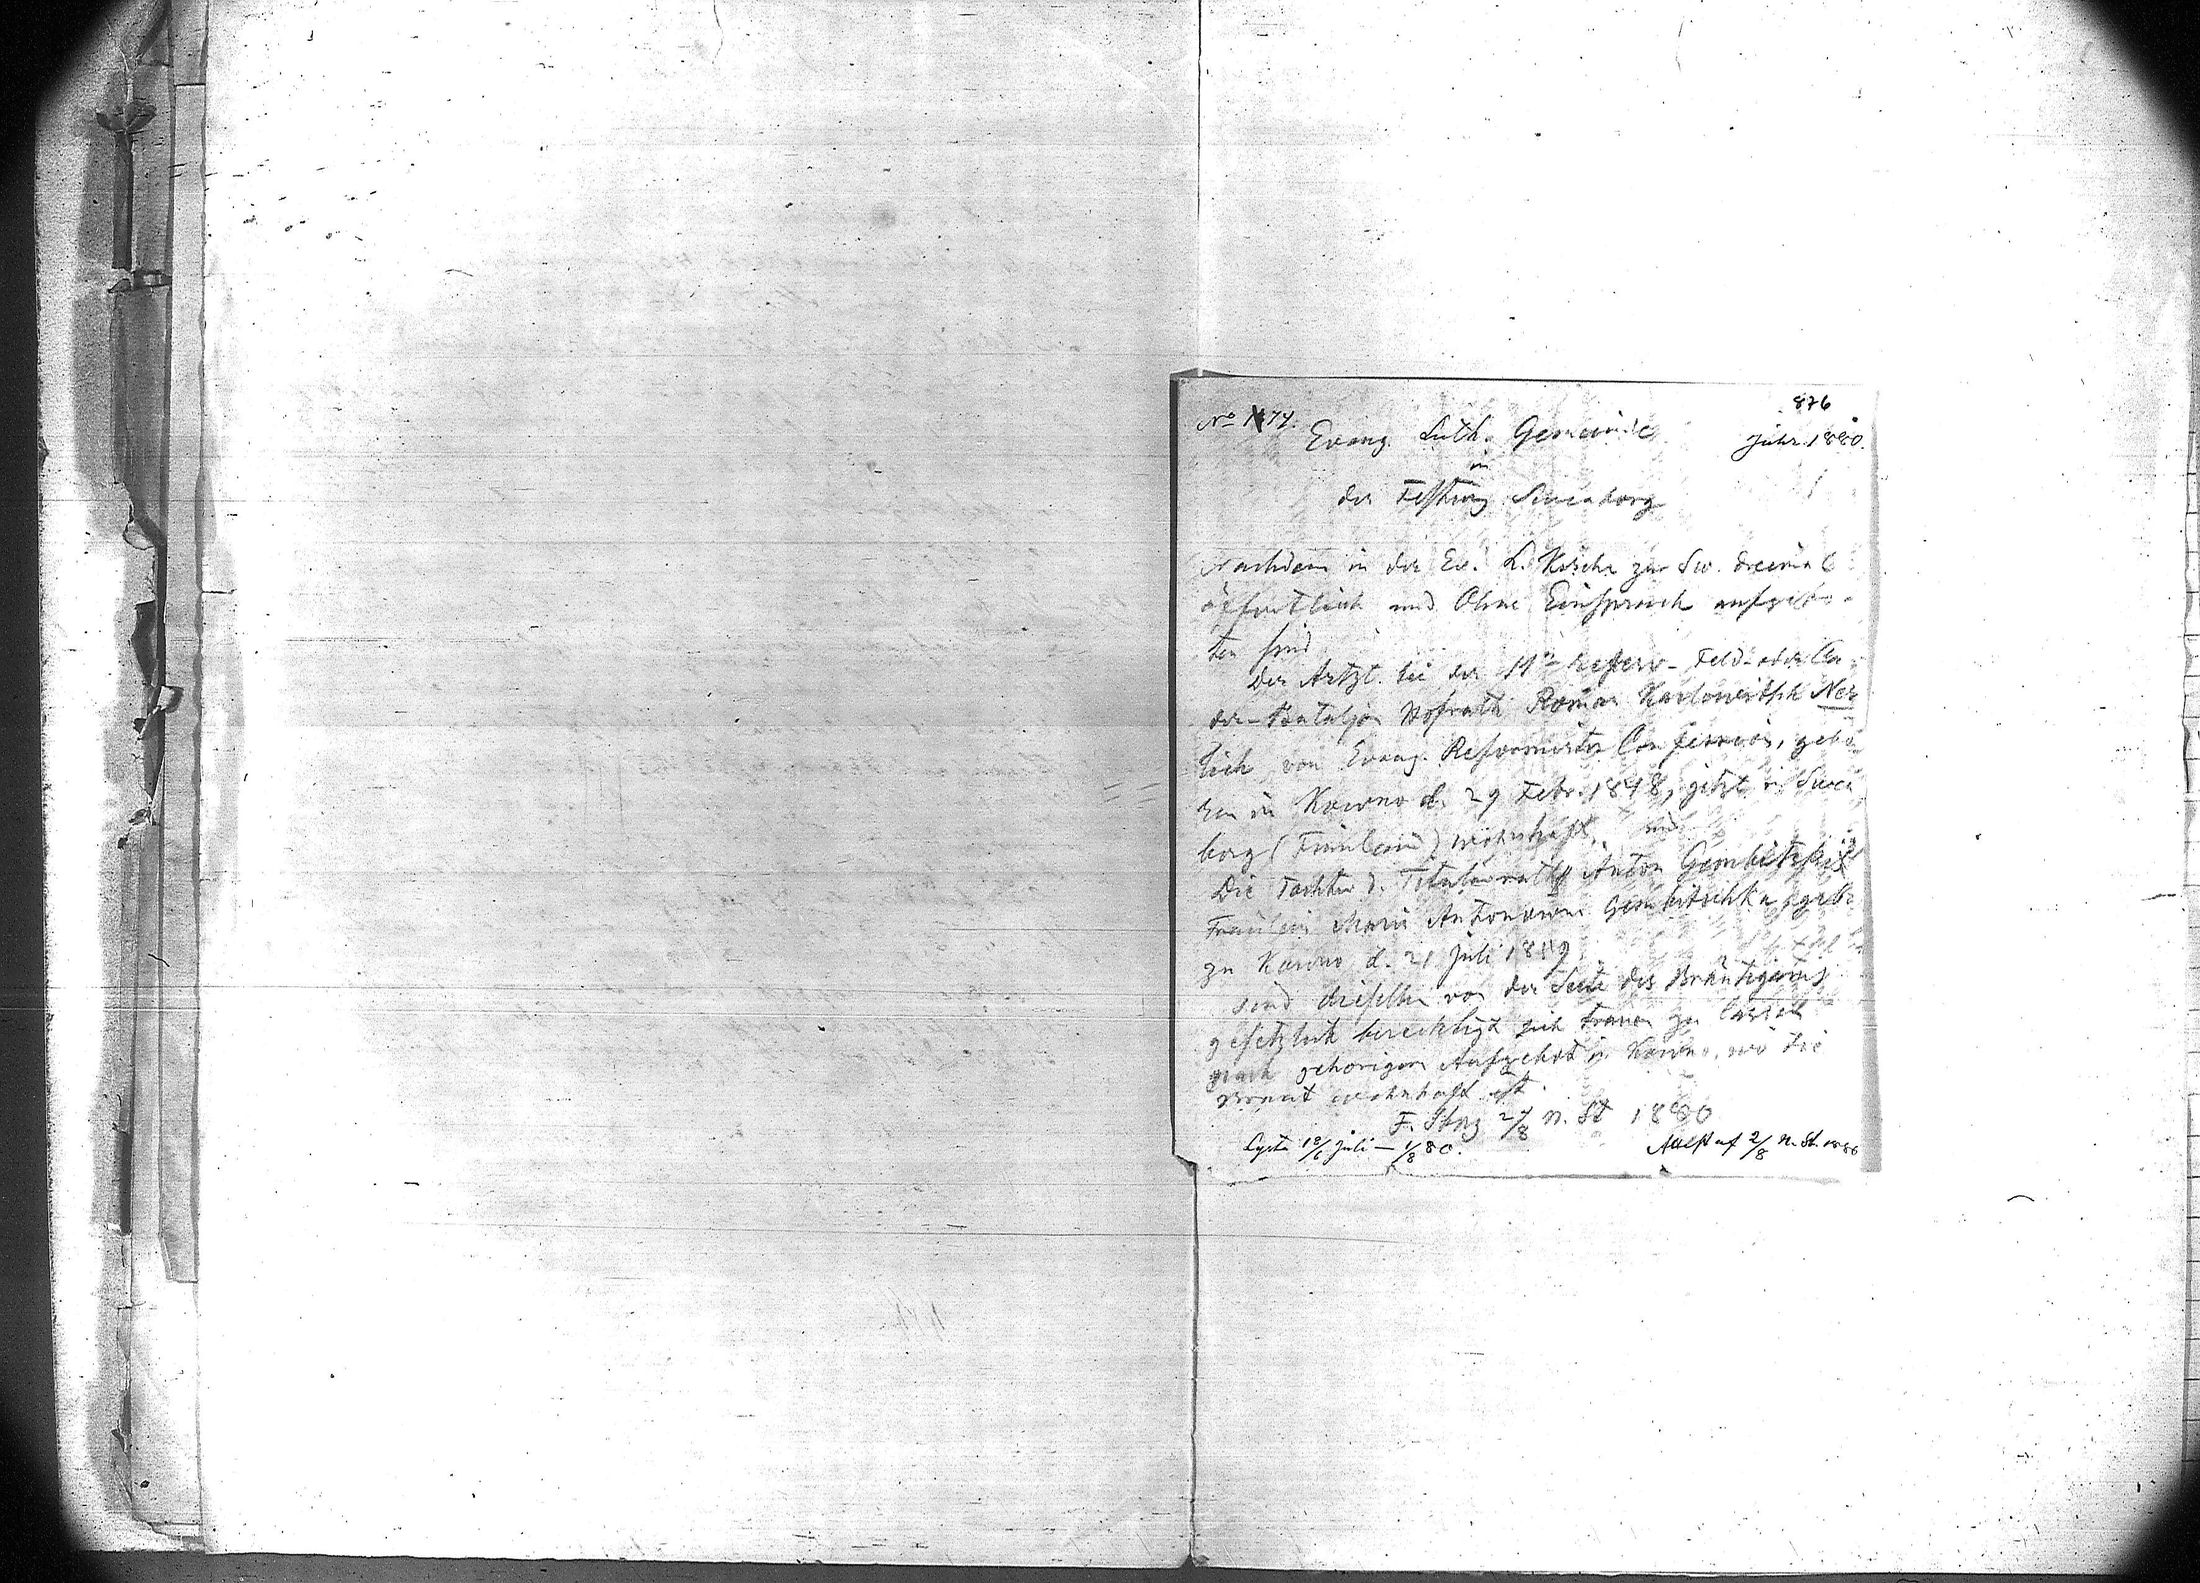 876
No 174.
Evang. Luth. Gemeinde
Jahr. 1880.
in
der Festung Sveaborg
Nachdem in der Ev. L. Kirche zur Sw. dreimal
öffentlich und Ohne Einspruch aufgebo-
ten sind
Der Artzt. bei der 11n Reserv-Feld-
der-Bataljon Hofrath Roman Karlowitsh Ner
lich von Evang. Reformirter Confession, gebo
ren in Kowno d. 29 Febr. 1848, jetzt in Svea
borg (Finnland) wohnhaft, und
Die Tochter d. Titulärraths Anton Gembitzkij
Fräulein Marie Antonowna Gembitschka, geb.
zu Kowno d. 21 Juli 1859
sind dieselben von der Seite des Bräutigams
gesetzlich berechtigt sich trauen zu lassen
nach gehörigem Aufgebot in Kowno, wo die
Braut wohnhaft ist.
F. Sbrg 2/8 n. St 1880
Lysta 18/ Juli — 1/8 80.
Attest af 2/8 n. St. 1880